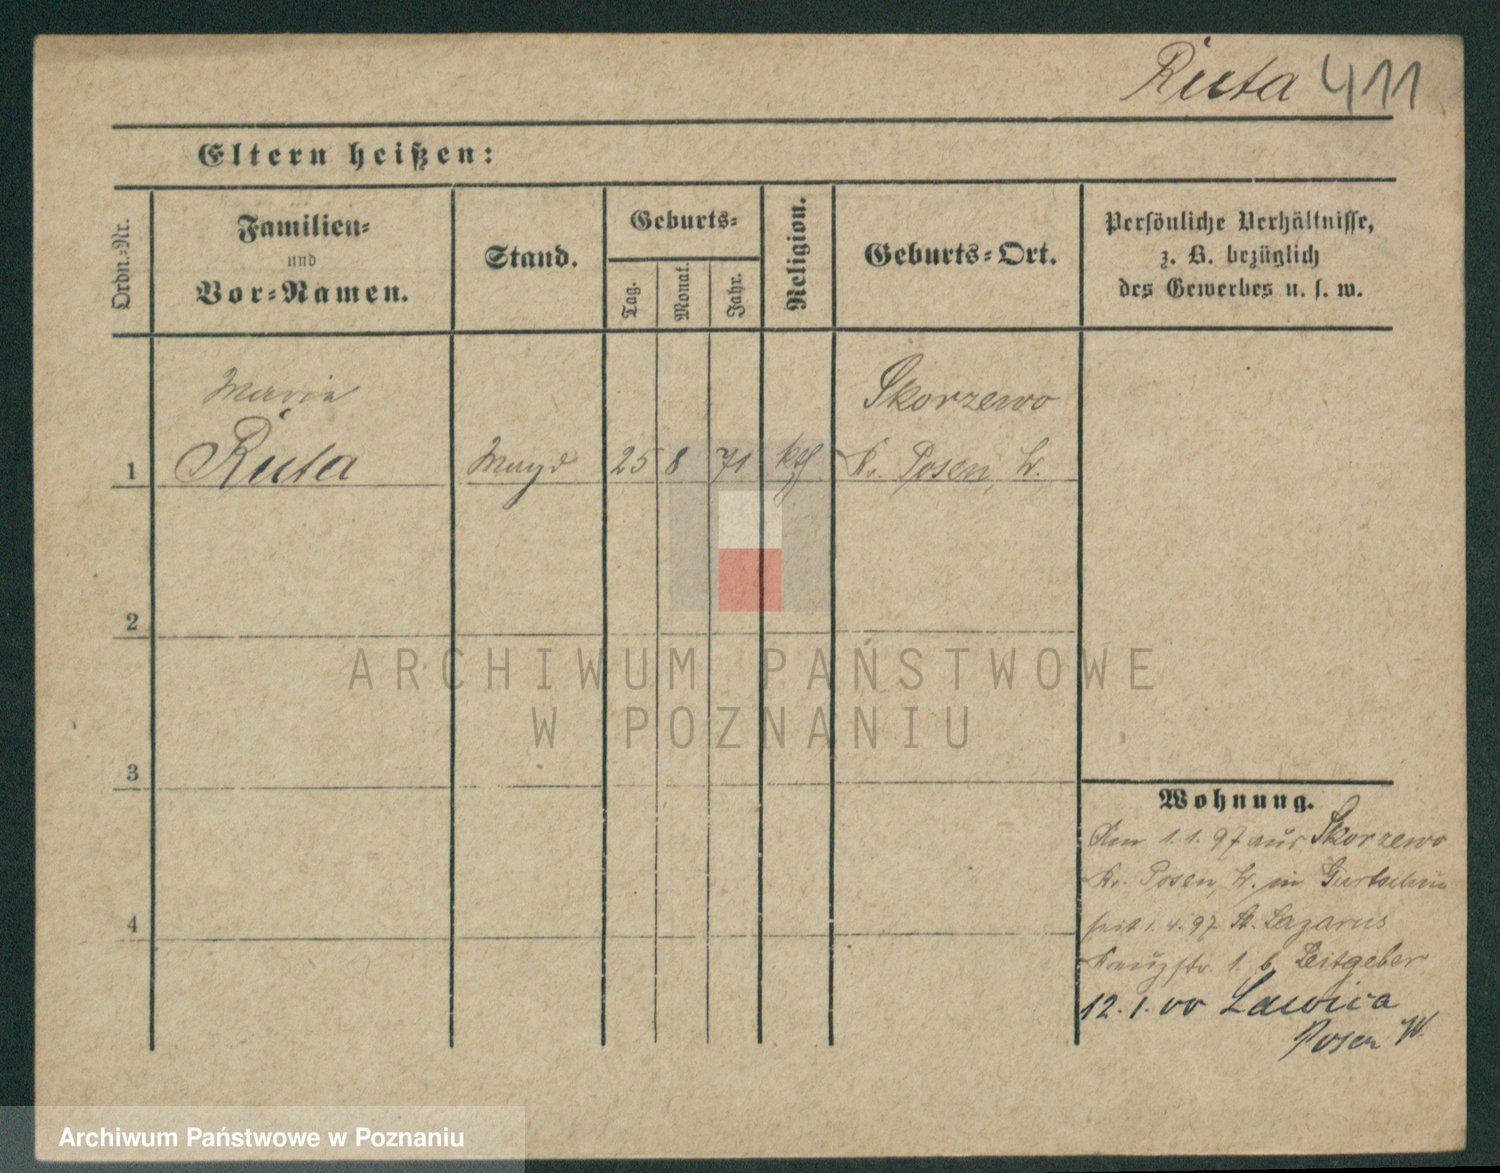 Ruta 411
Eltern heißen:
Ordn.-Nr.
Familien-
und
Vor-Namen.
Stand.
Geburts-
Tag.
Monat.
Jahr.
Religion.
Geburts-Ort.
Persönliche Verhältnisse,
z. B. bezüglich
des Gewerbes u. s. w.
Maria
Skorzewo
1 Ruta Magd 25 8 71 kth Kr. Posen, W.
2
3
4
Wohnung.
Am 1.1.97 aus Skorzewo
Kr. Posen, W. in
seit 1.4.97 St. Lazarus
Kreuzstr. 1 b. Leitgeber
12.1.00 Lawica
Posen W.
ARCHIWUM PAŃSTWOWE
W POZNANIU
Archiwum Państwowe w Poznaniu